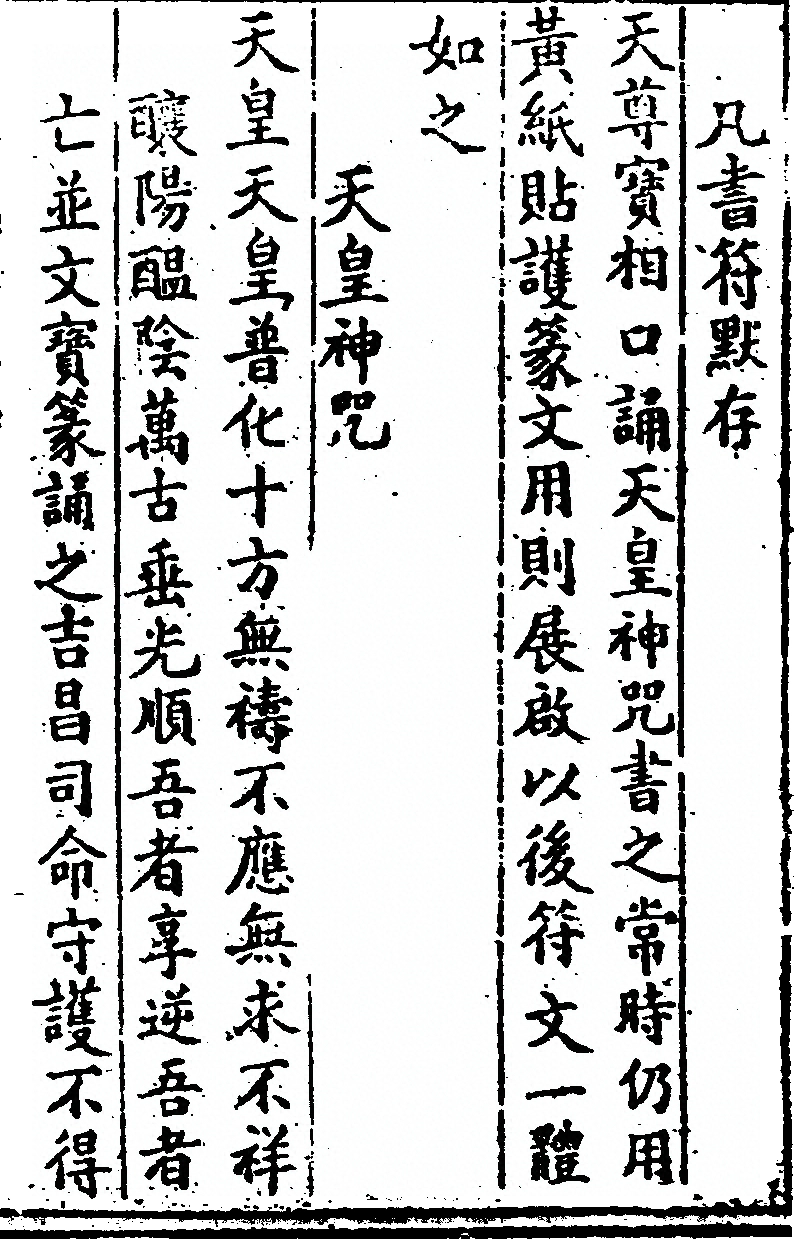 凡書符默存
天尊寶相口誦天皇神咒書之常時仍用
黃紙貼護篆文用則展啟以後符文一體
如之
天皇神咒
天皇天皇普化十方無禱不應無求不祥
釀陽醞陰萬古垂光順吾者享逆吾者
亡並文寶篆誦之吉昌司命守護不得